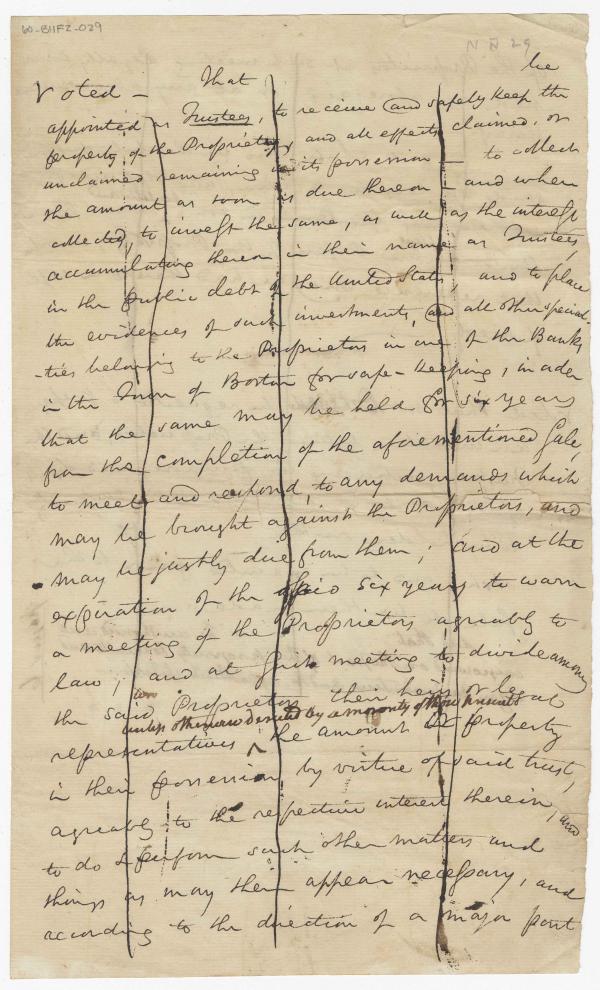 60-BHFZ-029
N D 29
Voted - That be
appointed as Trustees, to receive and safely keep the
property of the Proprietors, and all effects claimed, or
unclaimed remaining in its possession - to collect
the amount as soon as due thereon - and when
collected, to invest the same, as well as the interest
accumulating thereon in their name as Trustees,
in the public debt of the United States, and to place
the evidences of such investments, and all other special-
-ties belonging to the Proprietors in one of the Banks
in the Town of Boston for safe-keeping, in order
that the same may be held for six years
from the completion of the aforementioned Sale,
to meet and respond, to any demands which
may be brought against the Proprietors, and
may be justly due from them; and at the
expiration of the said six years to warn
a meeting of the Proprietors agreably to
law; and at such meeting to divide among
the said Proprietors their heirs or legal
unless otherwise directed by a majority of those presents
representatives ^ the amount of property
in their possession by virtue of said trust,
agreably to the respective interest therein, and
to do & perform such other matters and
things as may then appear necessary, and
according to the direction of a major part